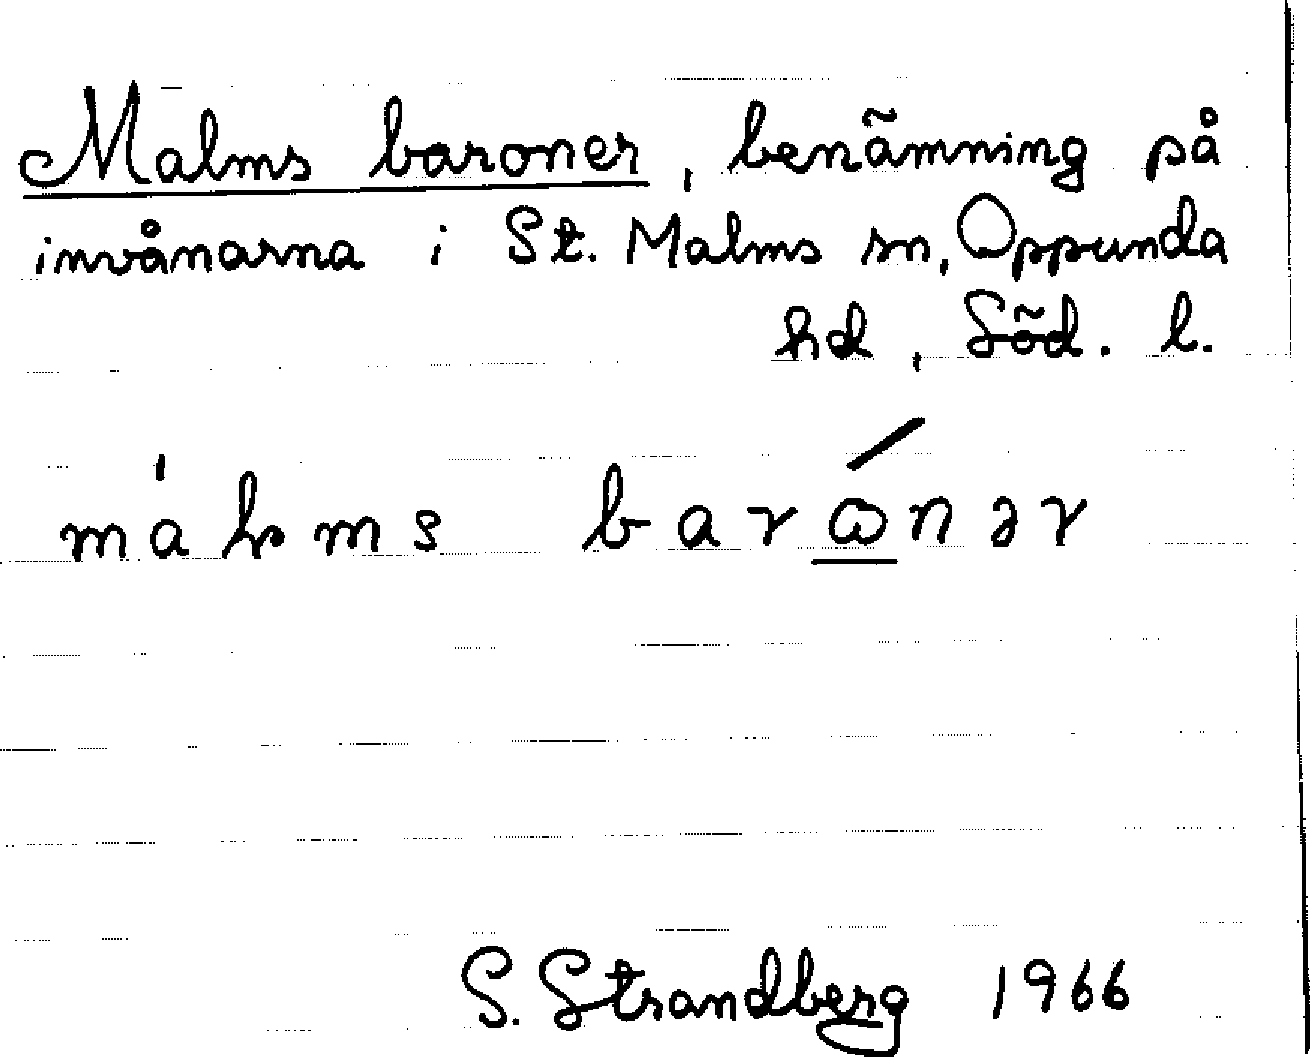 Malms baroner, benämning på
invånarna i St. Malms sn, Oppunda
hd, Söd. l.
S. Strandberg 1966